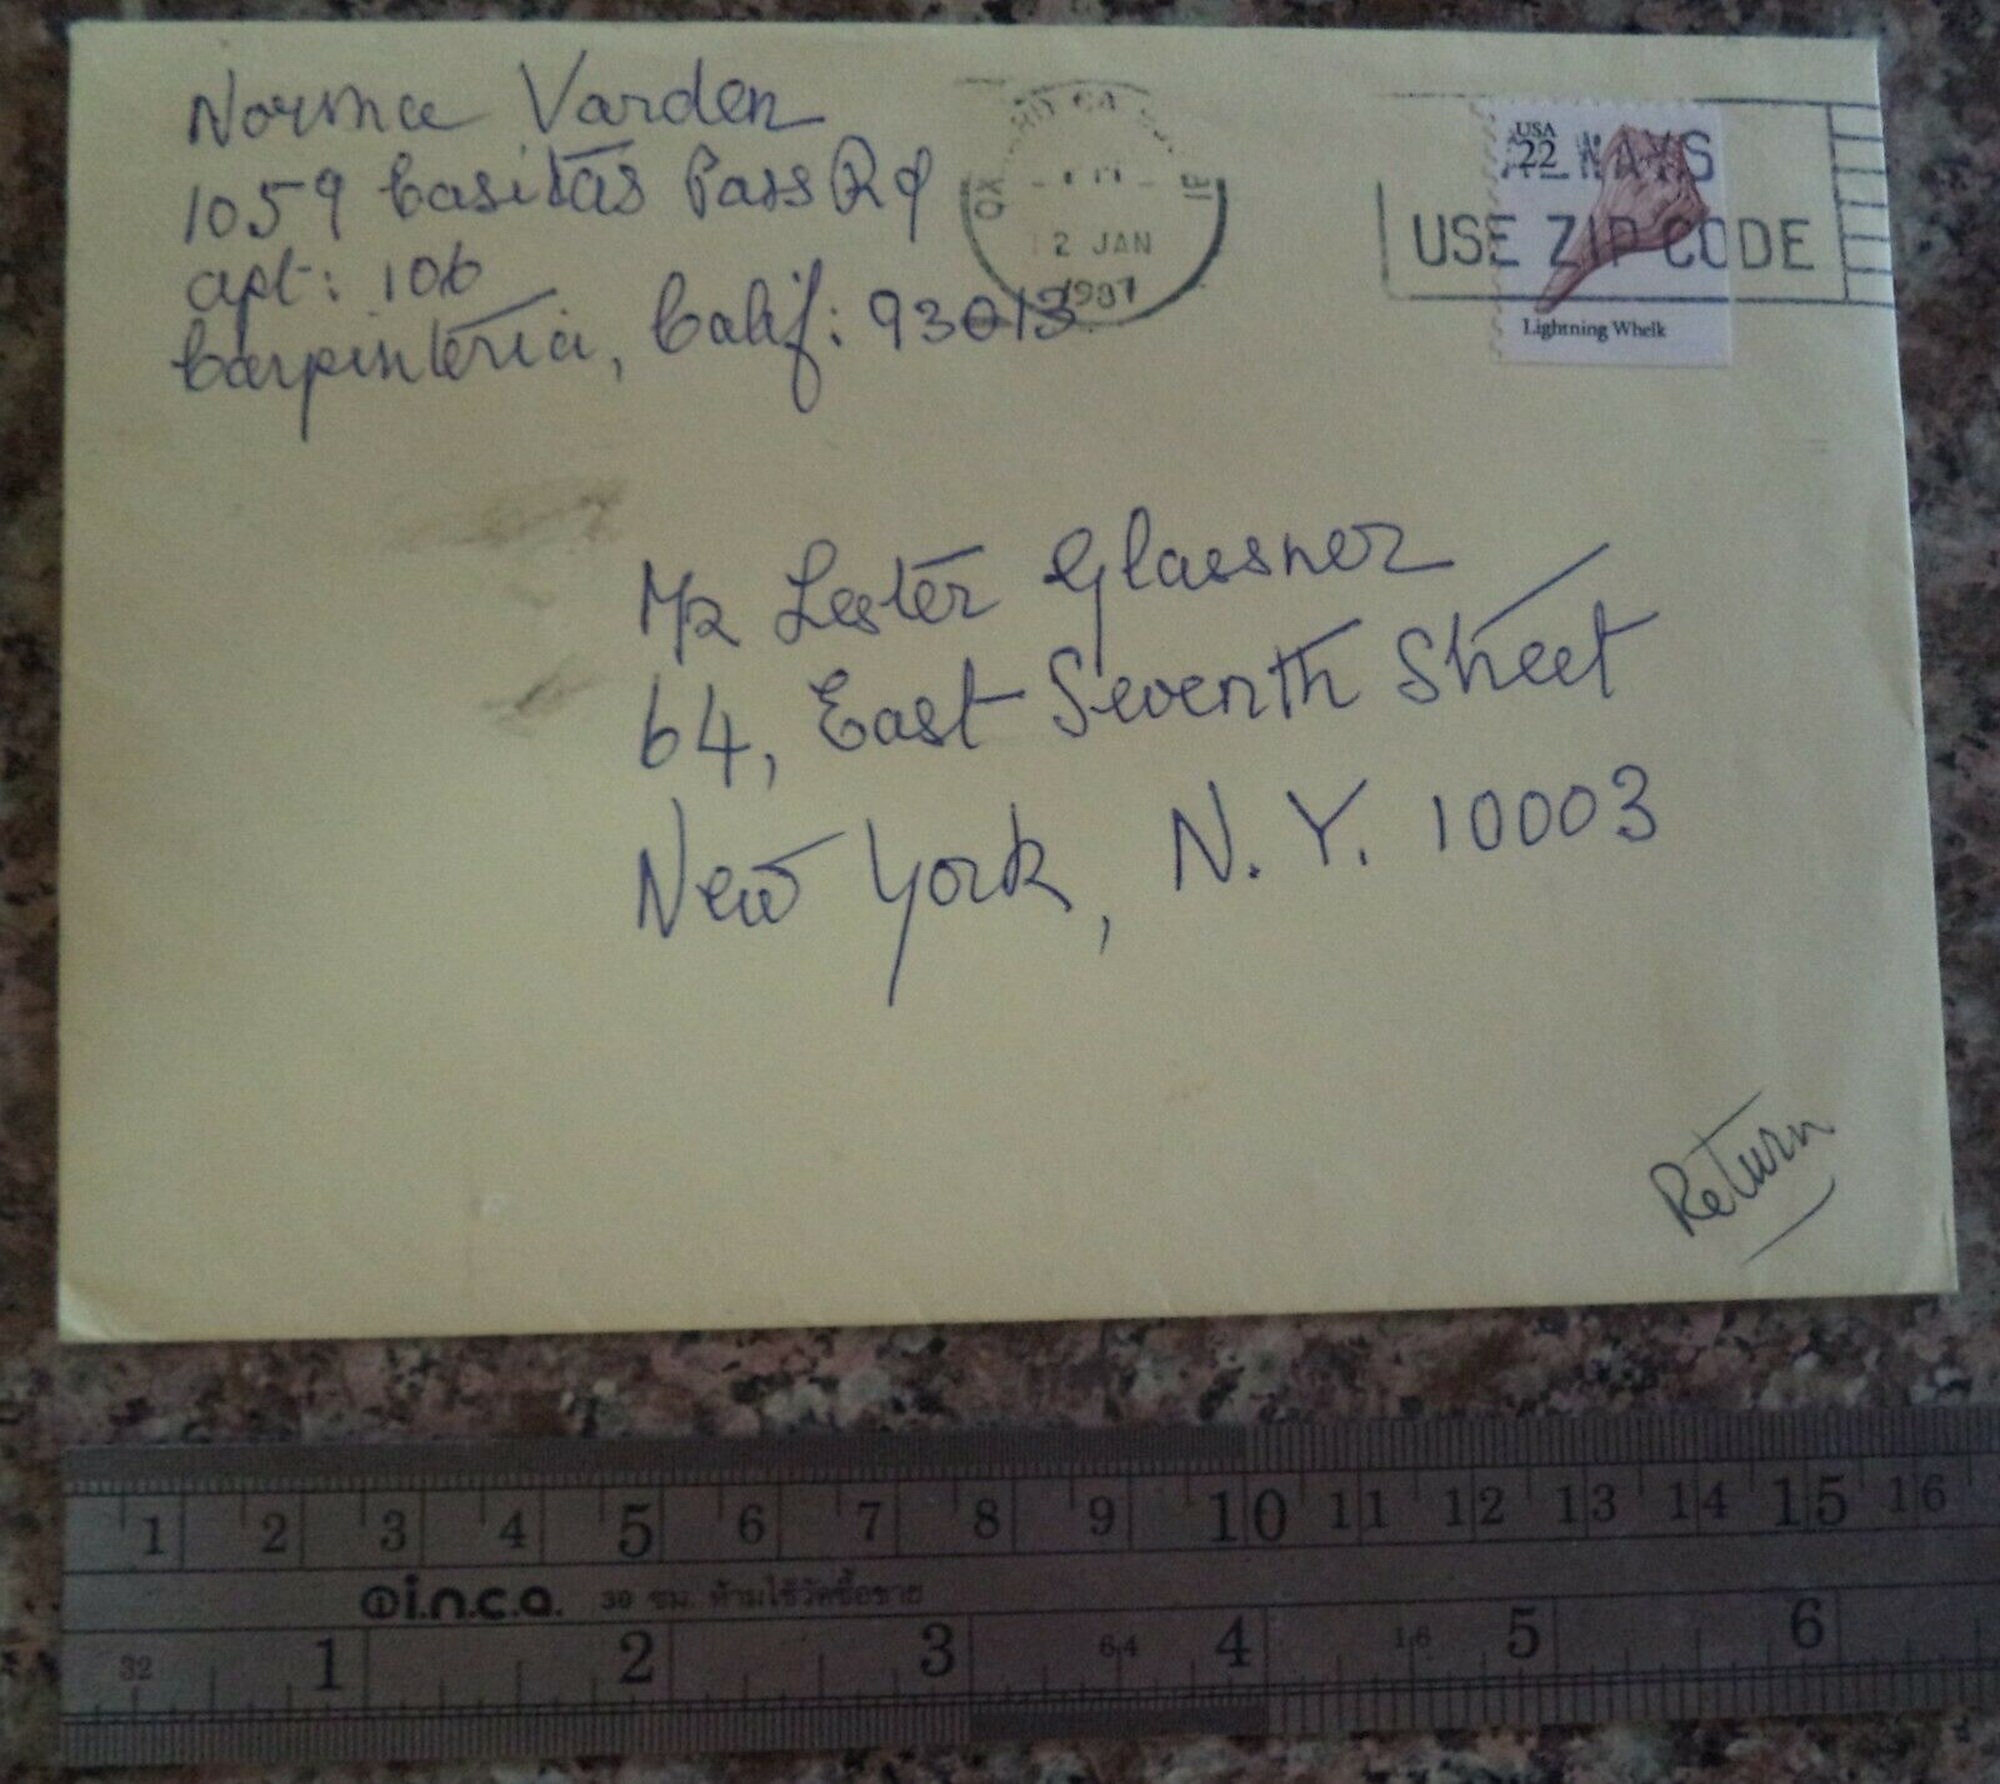 Norma Varden
1059 Casitas Pass Rd
apt: 106
Carpinteria, Calif: 93013
12 JAN
1987
USA
22
ALWAYS
USE ZIP CODE
Lightning Whelk
Mr Lester Glassner
64, East Seventh Street
New York, N.Y. 10003
Return
1 2 3 4 5 6 7 8 9 10 11 12 13 14 15 16
i.n.c.o. 30 ซม. ห้ามใช้วัดซื้อขาย
32 1 2 3 64 4 16 5 6